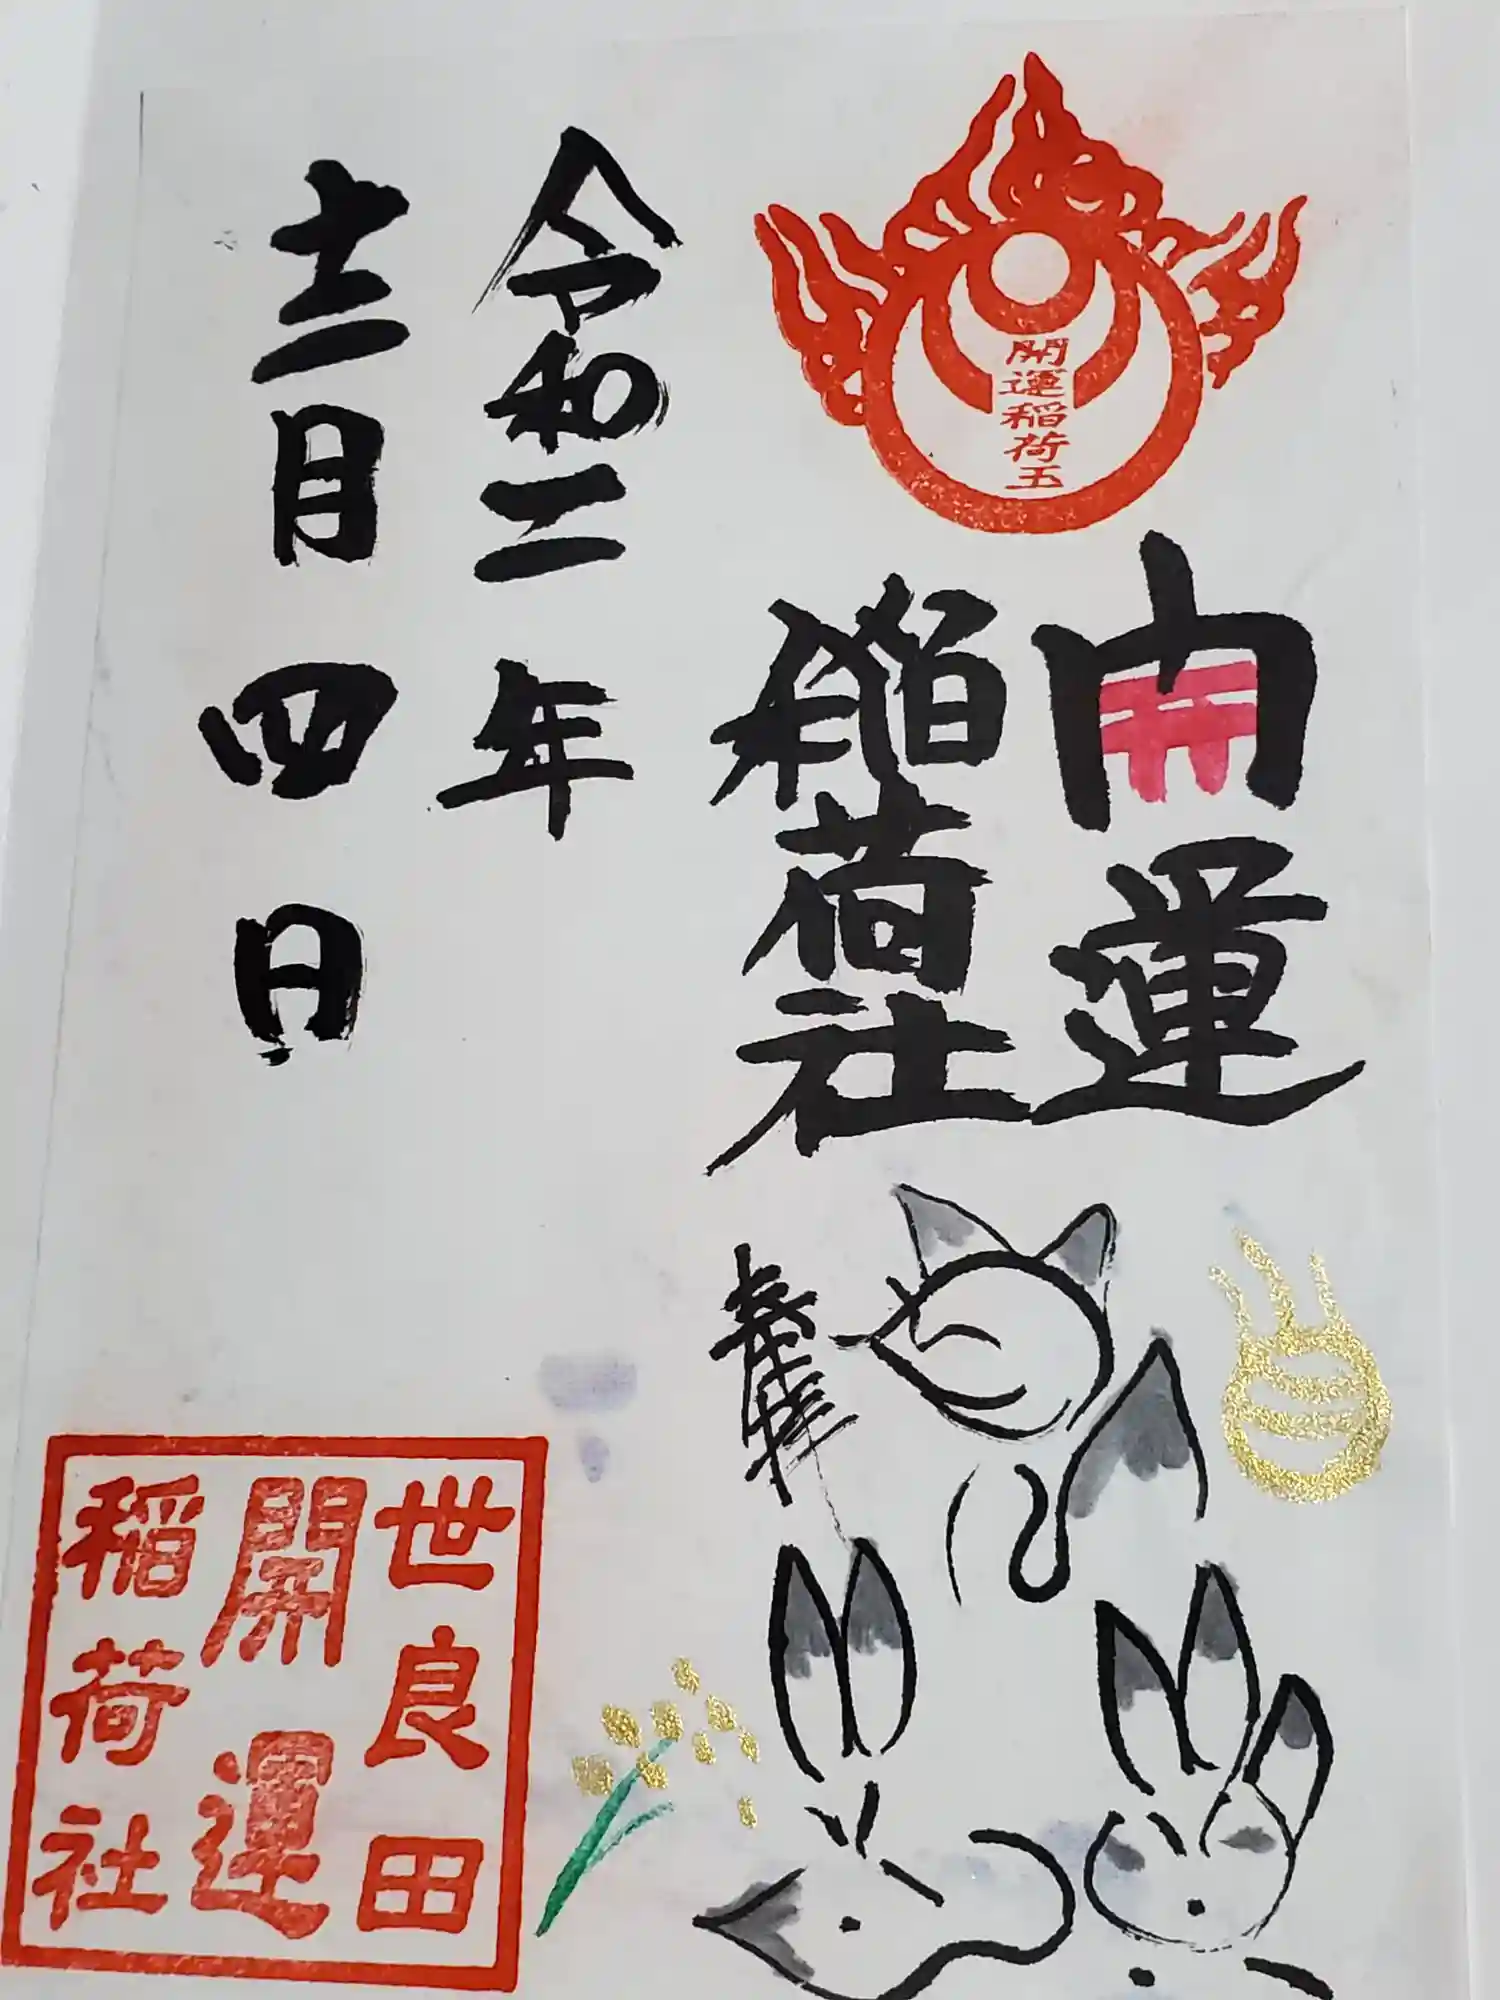 開運稲荷玉
開運
稲荷社
奉拝
令和二年
十二月四日
世良田
開運
稲荷社